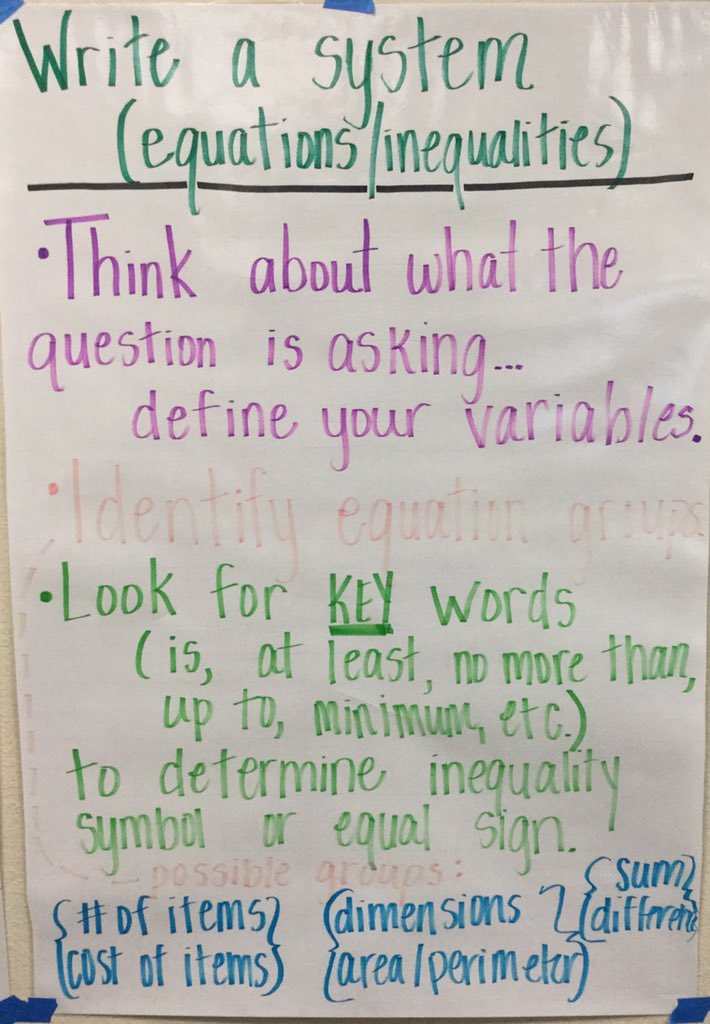 Write a system
(equations/inequalities)
• Think about what the
question is asking...
define your variables.
• Identify equation groups
• Look for KEY words
(is, at least, no more than,
up to, minimum, etc.)
to determine inequality
symbol or equal sign.
– possible groups:
{# of items} {dimensions} {sum}
{cost of items} {area/perimeter} {different